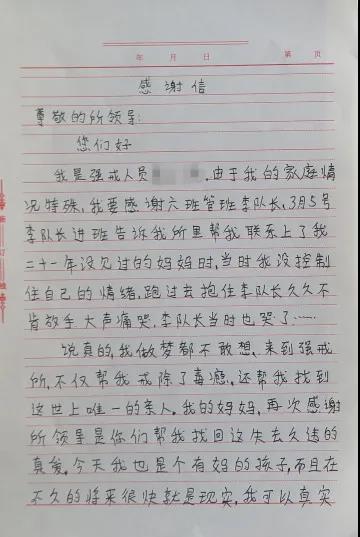 年 月 日 第 页
感谢信
尊敬的所领导:
您们好
我是强戒人员 由于我的家庭情
况特殊,我要感谢六班管班李队长,3月5号
李队长进班告诉我所里帮我联系上了我
二十一年没见过的妈妈时,当时我没控制
住自己的情绪,跑过去抱住李队长久久不
肯放手大声痛哭,李队长当时也哭了……
说真的,我做梦都不敢想,来到强戒
所,不仅帮我戒除了毒瘾,还帮我找到
这世上唯一的亲人,我的妈妈,再次感谢
所领导是你们帮我找回这失去久违的
真爱,今天我也是个有妈的孩子,而且在
不久的将来很快就是现实,我可以真实